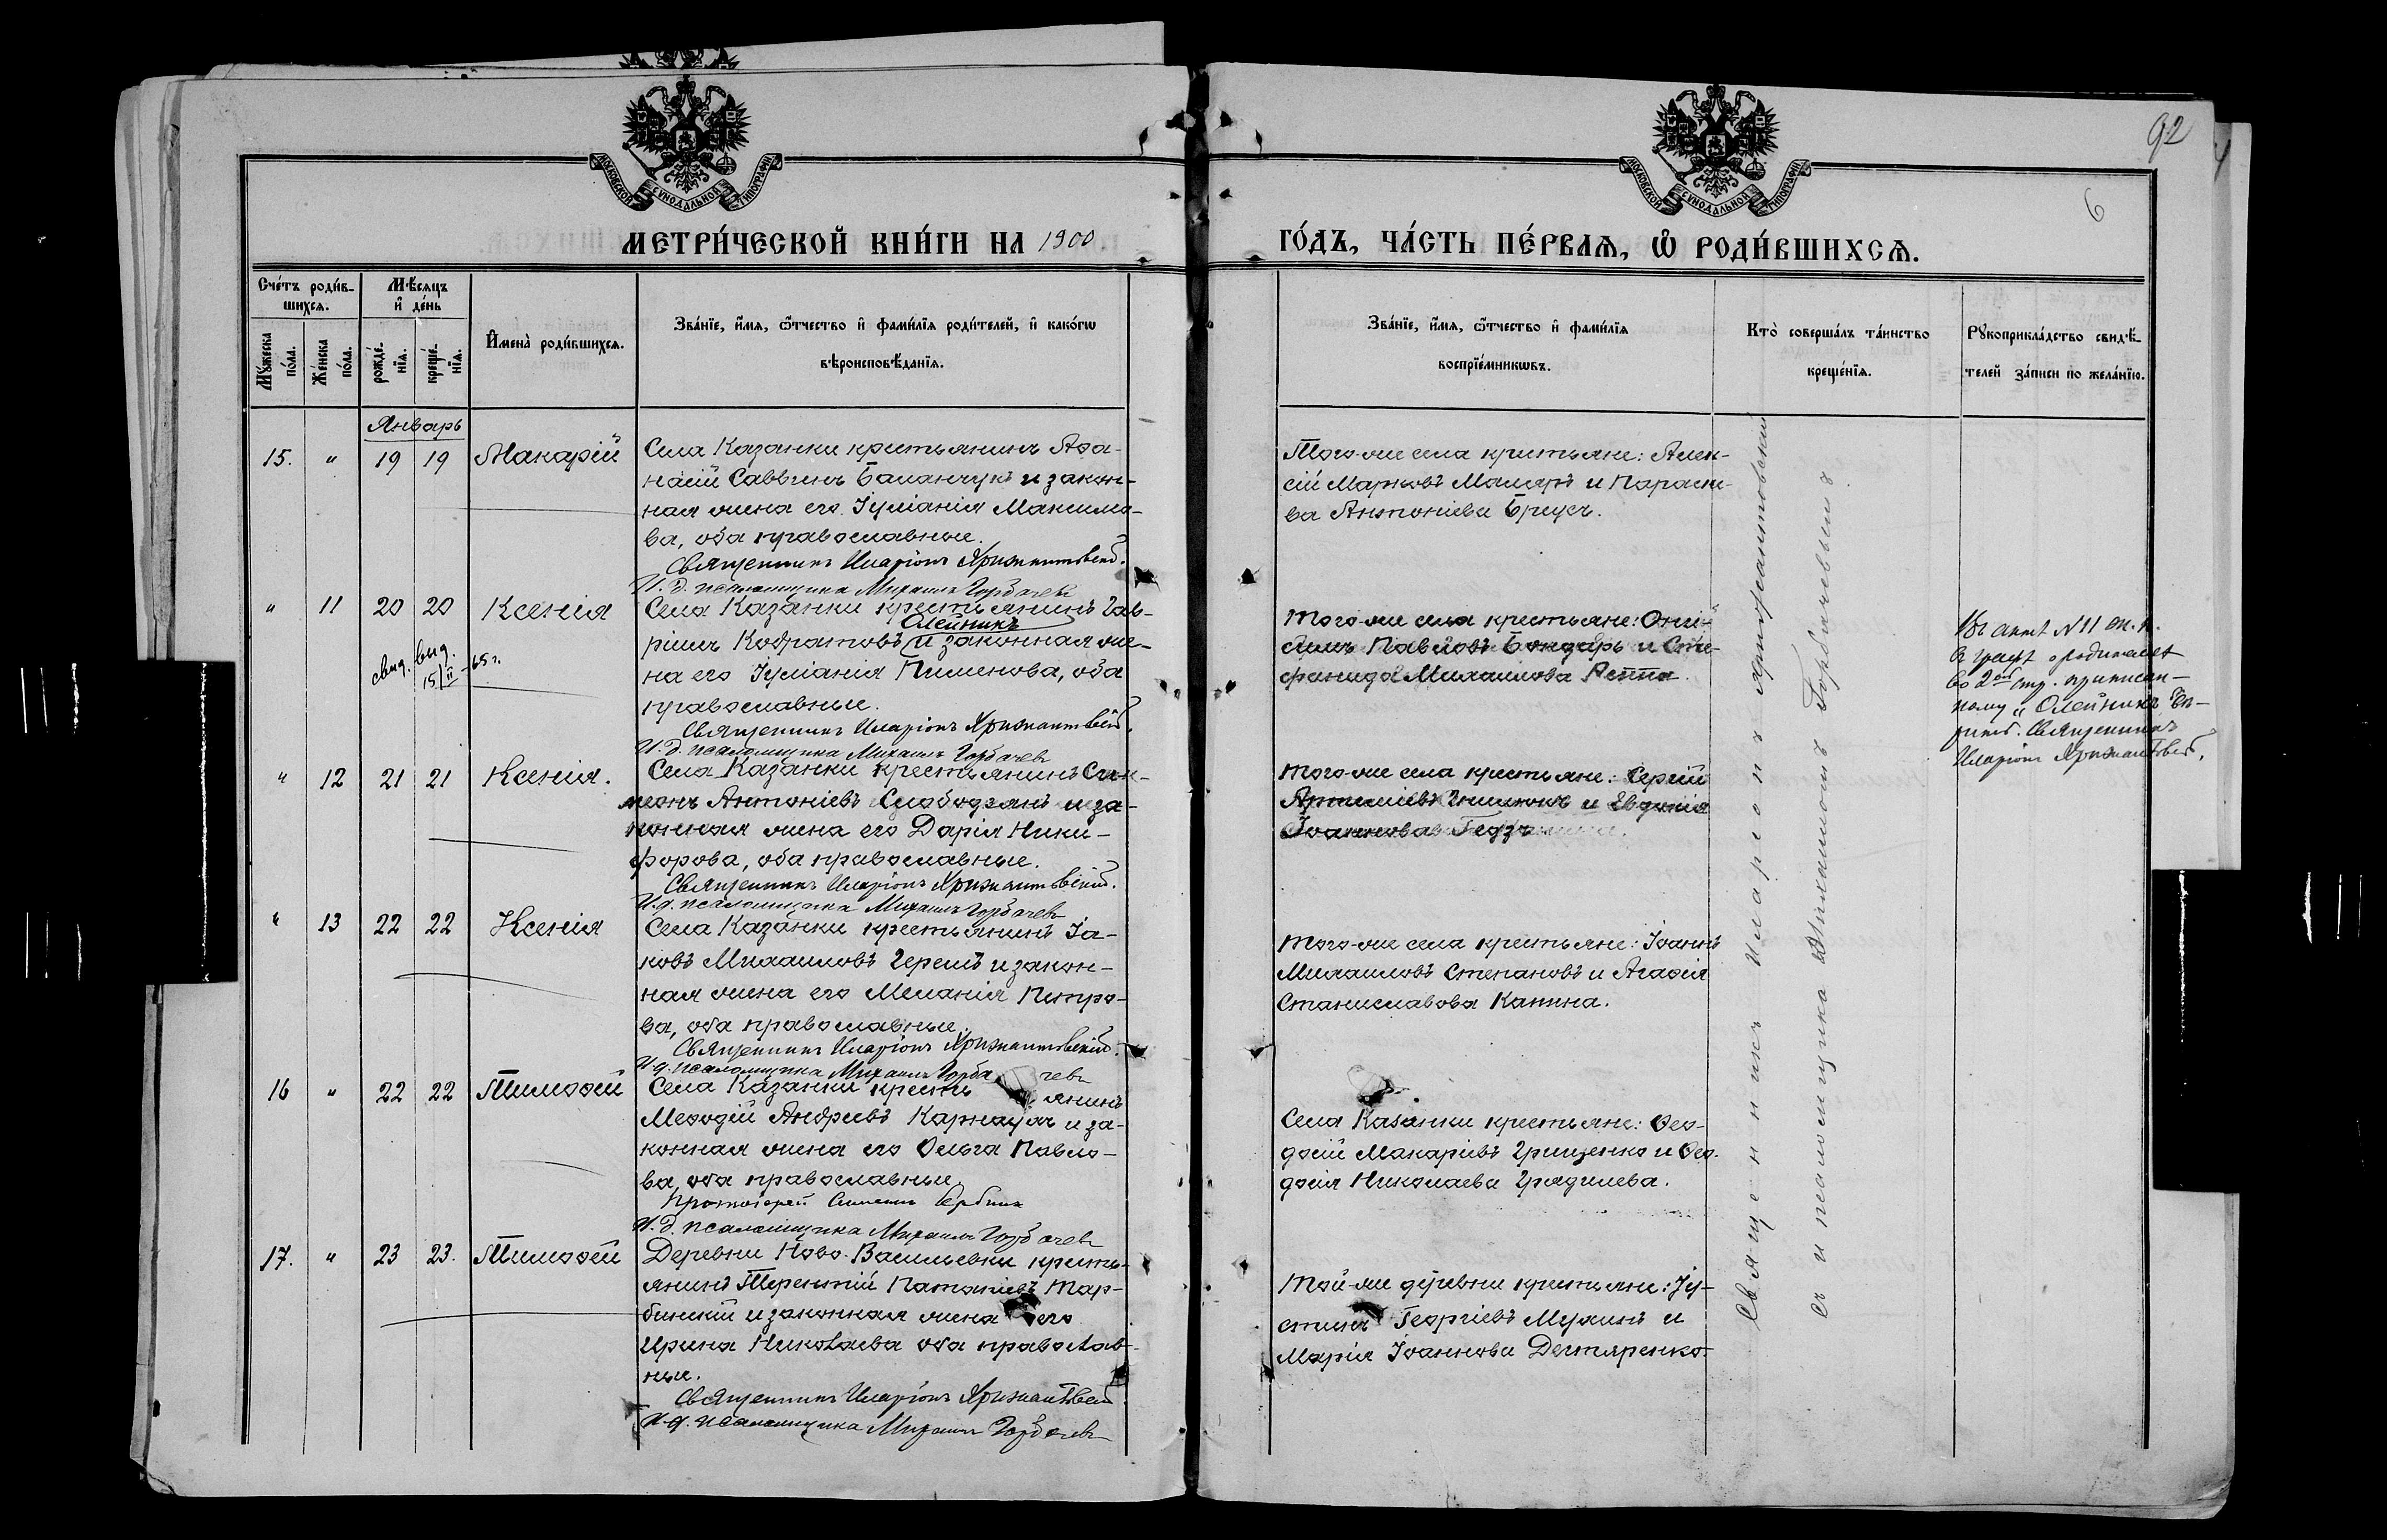 92
6
МОСКОВСКОЙ СѴНОДАЛЬНОЙ ТИПОГРАФІИ
МОСКОВСКОЙ СѴНОДАЛЬНОЙ ТИПОГРАФІИ
МЕТРИ́ЧЕСКОЙ КНИ́ГИ НА 1900
ГО́ДЪ, ЧА́СТЬ ПЕ́РВАѦ, Ѡ РОДИ́ВШИХСѦ.
Сче́тъ роди́в-
шихсѧ.
Мѣ́сѧцъ
и҆ де́нь
Мꙋ́жеска
по́ла.
Же́нска
по́ла.
рожде́-
нїѧ.
креще́-
нїѧ.
И҆мена̀ роди́вшихсѧ.
Зва́нїе, и҆́мѧ, ѻ҆́тчество и҆ фами́лїѧ роди́телей, и҆ како́гѡ
вѣроисповѣ́данїѧ.
Зва́нїе, и҆́мѧ, ѻ҆́тчество и҆ фами́лїѧ
воспрїе́мникѡвъ.
Кто̀ соверша́лъ та́инство
креще́нїѧ.
Рꙋкоприкла́дство свидѣ́-
телей за́писи по жела́нїю.
Январь
15. " 19 19 Макарій
Села Казанки крестьянинъ Аѳа-
насій Саввинъ Баланчукъ и закон-
ная жена его Іуліанія Максимо-
ва, оба православные.
Священникъ Иларіонъ Хрисантовскій.
И. д. псаломщика Михаилъ Горбачевъ
Того-же села крестьяне: Алек-
сій Марковъ Маляръ и Параске-
ва Антоніева Брусъ.
" 11 20 20 Ксенія
свид. выд.
15/II-65 г.
Села Казанки крестьянинъ Гав-
Олейникъ
ріилъ Кодратовъ и законная же-
на его Іуліанія Пименова, оба
православные.
Священникъ Иларіонъ Хрисантовскій.
И. д. псаломщика Михаилъ Горбачевъ
Того-же села крестьяне: Они-
симъ Павловъ Бондарь и Сте-
фанида Михаилова
Въ актѣ N 11
въ графѣ о родителяхъ
во 2ой стр. приписан-
ному "Олейникъ"
Священникъ
Иларіонъ Хрисантовскій.
" 12 21 21 Ксенія.
Села Казанки крестьянинъ Сим-
меонъ Антоніевъ Слободзянъ и за-
конная жена его Дарія Ники-
форова, оба православные.
Священникъ Иларіонъ Хрисантовскій.
И. д. псаломщика Михаилъ Горбачевъ
Того-же села крестьяне: Сергій
и Евдокія
Іоаннова
" 13 22 22 Ксенія
Села Казанки крестьянинъ Іа-
ковъ Михаиловъ Черешъ и закон-
ная жена его Меланія Петро-
ва, оба православные.
Священникъ Иларіонъ Хрисантовскій.
И. д. псаломщика Михаилъ Горбачевъ
Того-же села крестьяне: Іоаннъ
Михаиловъ Степановъ и Агаѳія
Станиславова Капина.
16 " 22 22 Тимоѳей
Села Казанки крестьянинъ
Меѳодій Андреевъ Карнаухъ и за-
конная жена его Ольга Павло-
ва, оба православные.
Протоіерей
И. д. псаломщика Михаилъ Горбачевъ
Села Казанки крестьяне: Ѳео-
досій Макаріевъ Грищенко и Ѳео-
досія Николаева Градилева.
17. " 23 23. Тимоѳей
Деревни Ново-Васильевки кресть-
янинъ Терентій Патапіевъ Тар-
бинскій и законная жена его
Ирина Николаева оба православ-
ные.
Священникъ Иларіонъ Хрисантовскій
И. д. псаломщика Михаилъ Горбачевъ
Той-же деревни крестьяне: Іу-
стинъ Георгіевъ Мухинъ и
Марія Іоаннова Дегтяренко.
Священникъ Иларіонъ Хрисантовскій
съ и псаломщика Михаиломъ Горбачевымъ